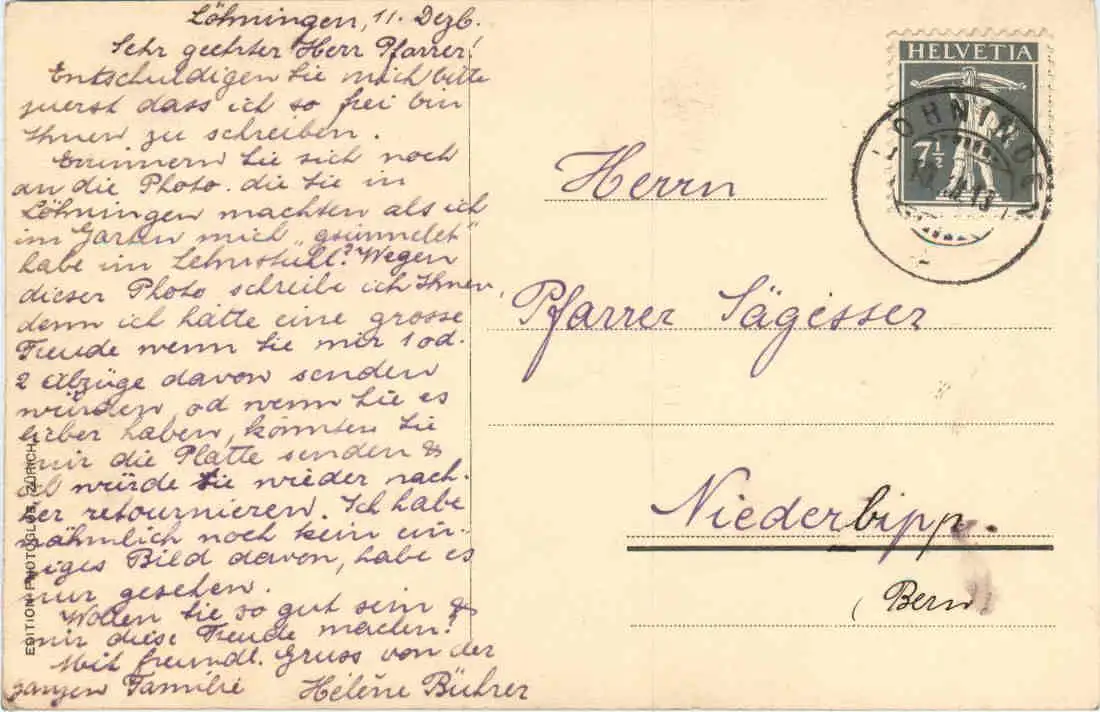 Löhningen, 11. Dezb.
Sehr geehrter Herr Pfarrer!
Entschuldigen Sie mich bitte
zuerst dass ich so frei bin
Ihnen zu schreiben.
Erinnern Sie sich noch
an die Photo. die Sie in
Löhningen machten als ich
im Garten mich „gsünnelet"
habe im Lehnstuhl? Wegen
dieser Photo schreibe ich Ihnen,
denn ich hätte eine grosse
Freude wenn Sie mir 1 od.
2 Abzüge davon senden
würden, od wenn Sie es
lieber haben, könnten Sie
mir die Platte senden &
ich würde sie wieder nach-
her retournieren. Ich habe
nähmlich noch kein ein-
ziges Bild davon, habe es
nur gesehen.
Wollen Sie so gut sein &
mir diese Freude machen?
Mit freundl. Gruss von der
ganzen Familie Hélène Bührer
EDITION PHOTOGLOB, ZÜRICH
HELVETIA
7½
LÖHNINGEN
Herrn
Pfarrer Sägesser
Niederbipp.
(Bern)